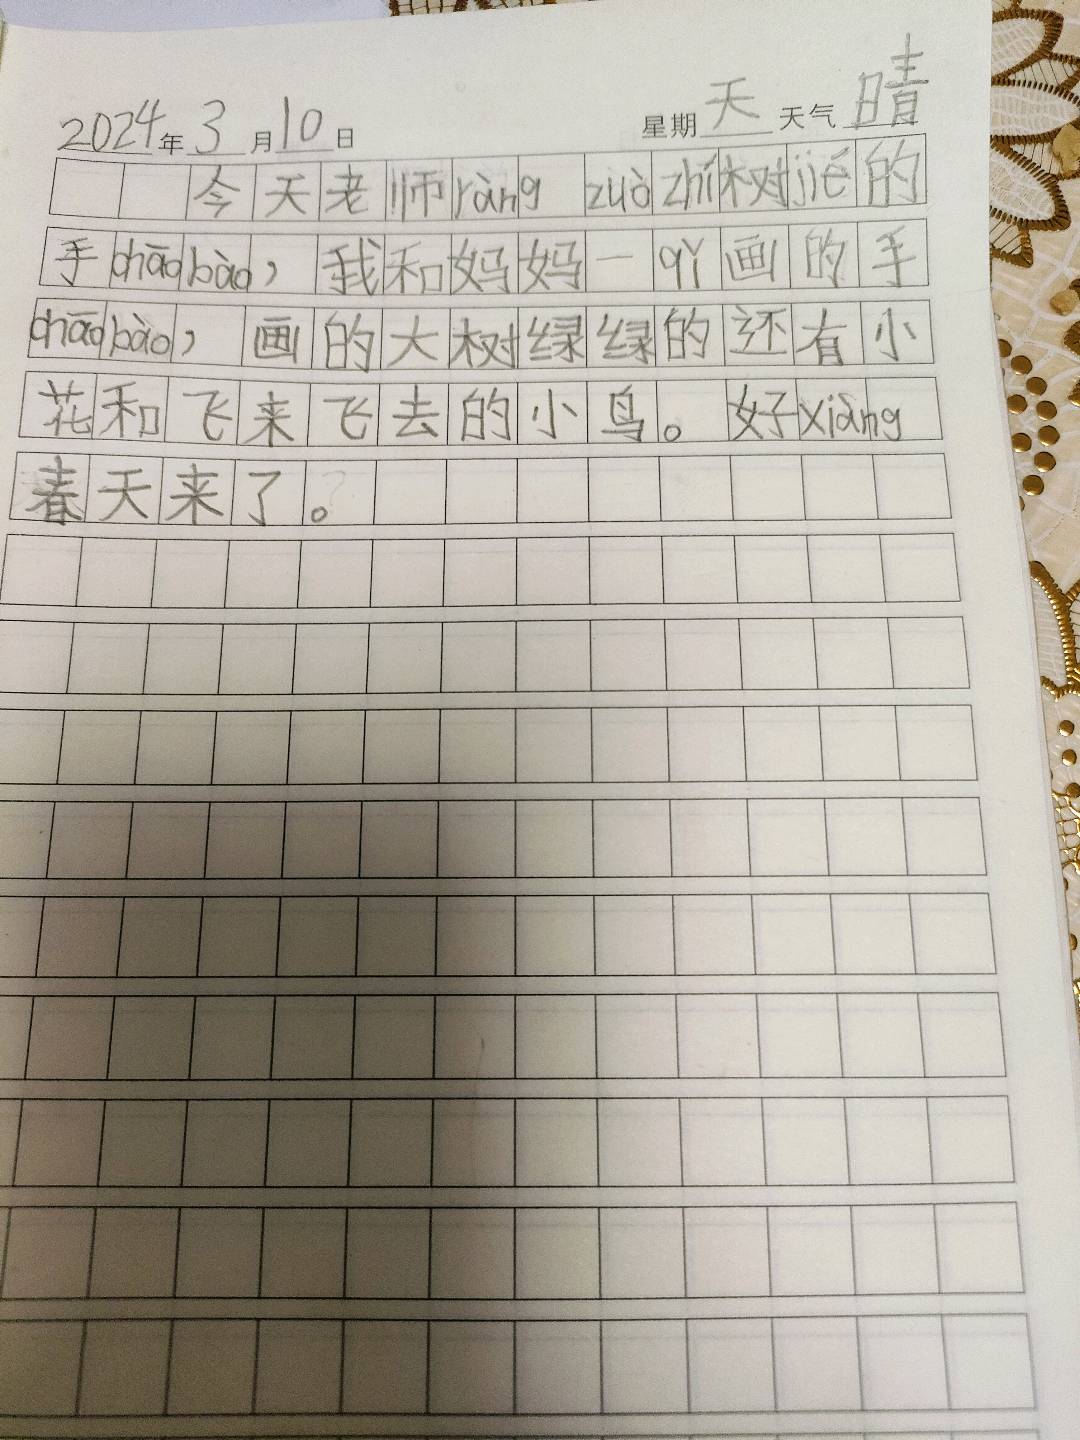 2024年3月10日 星期天 天气晴
今天老师ràng zuò zhí树jié的
手chāobào，我和妈妈一qǐ画的手
chāobào，画的大树绿绿的还有小
花和飞来飞去的小鸟。好xiàng
春天来了。